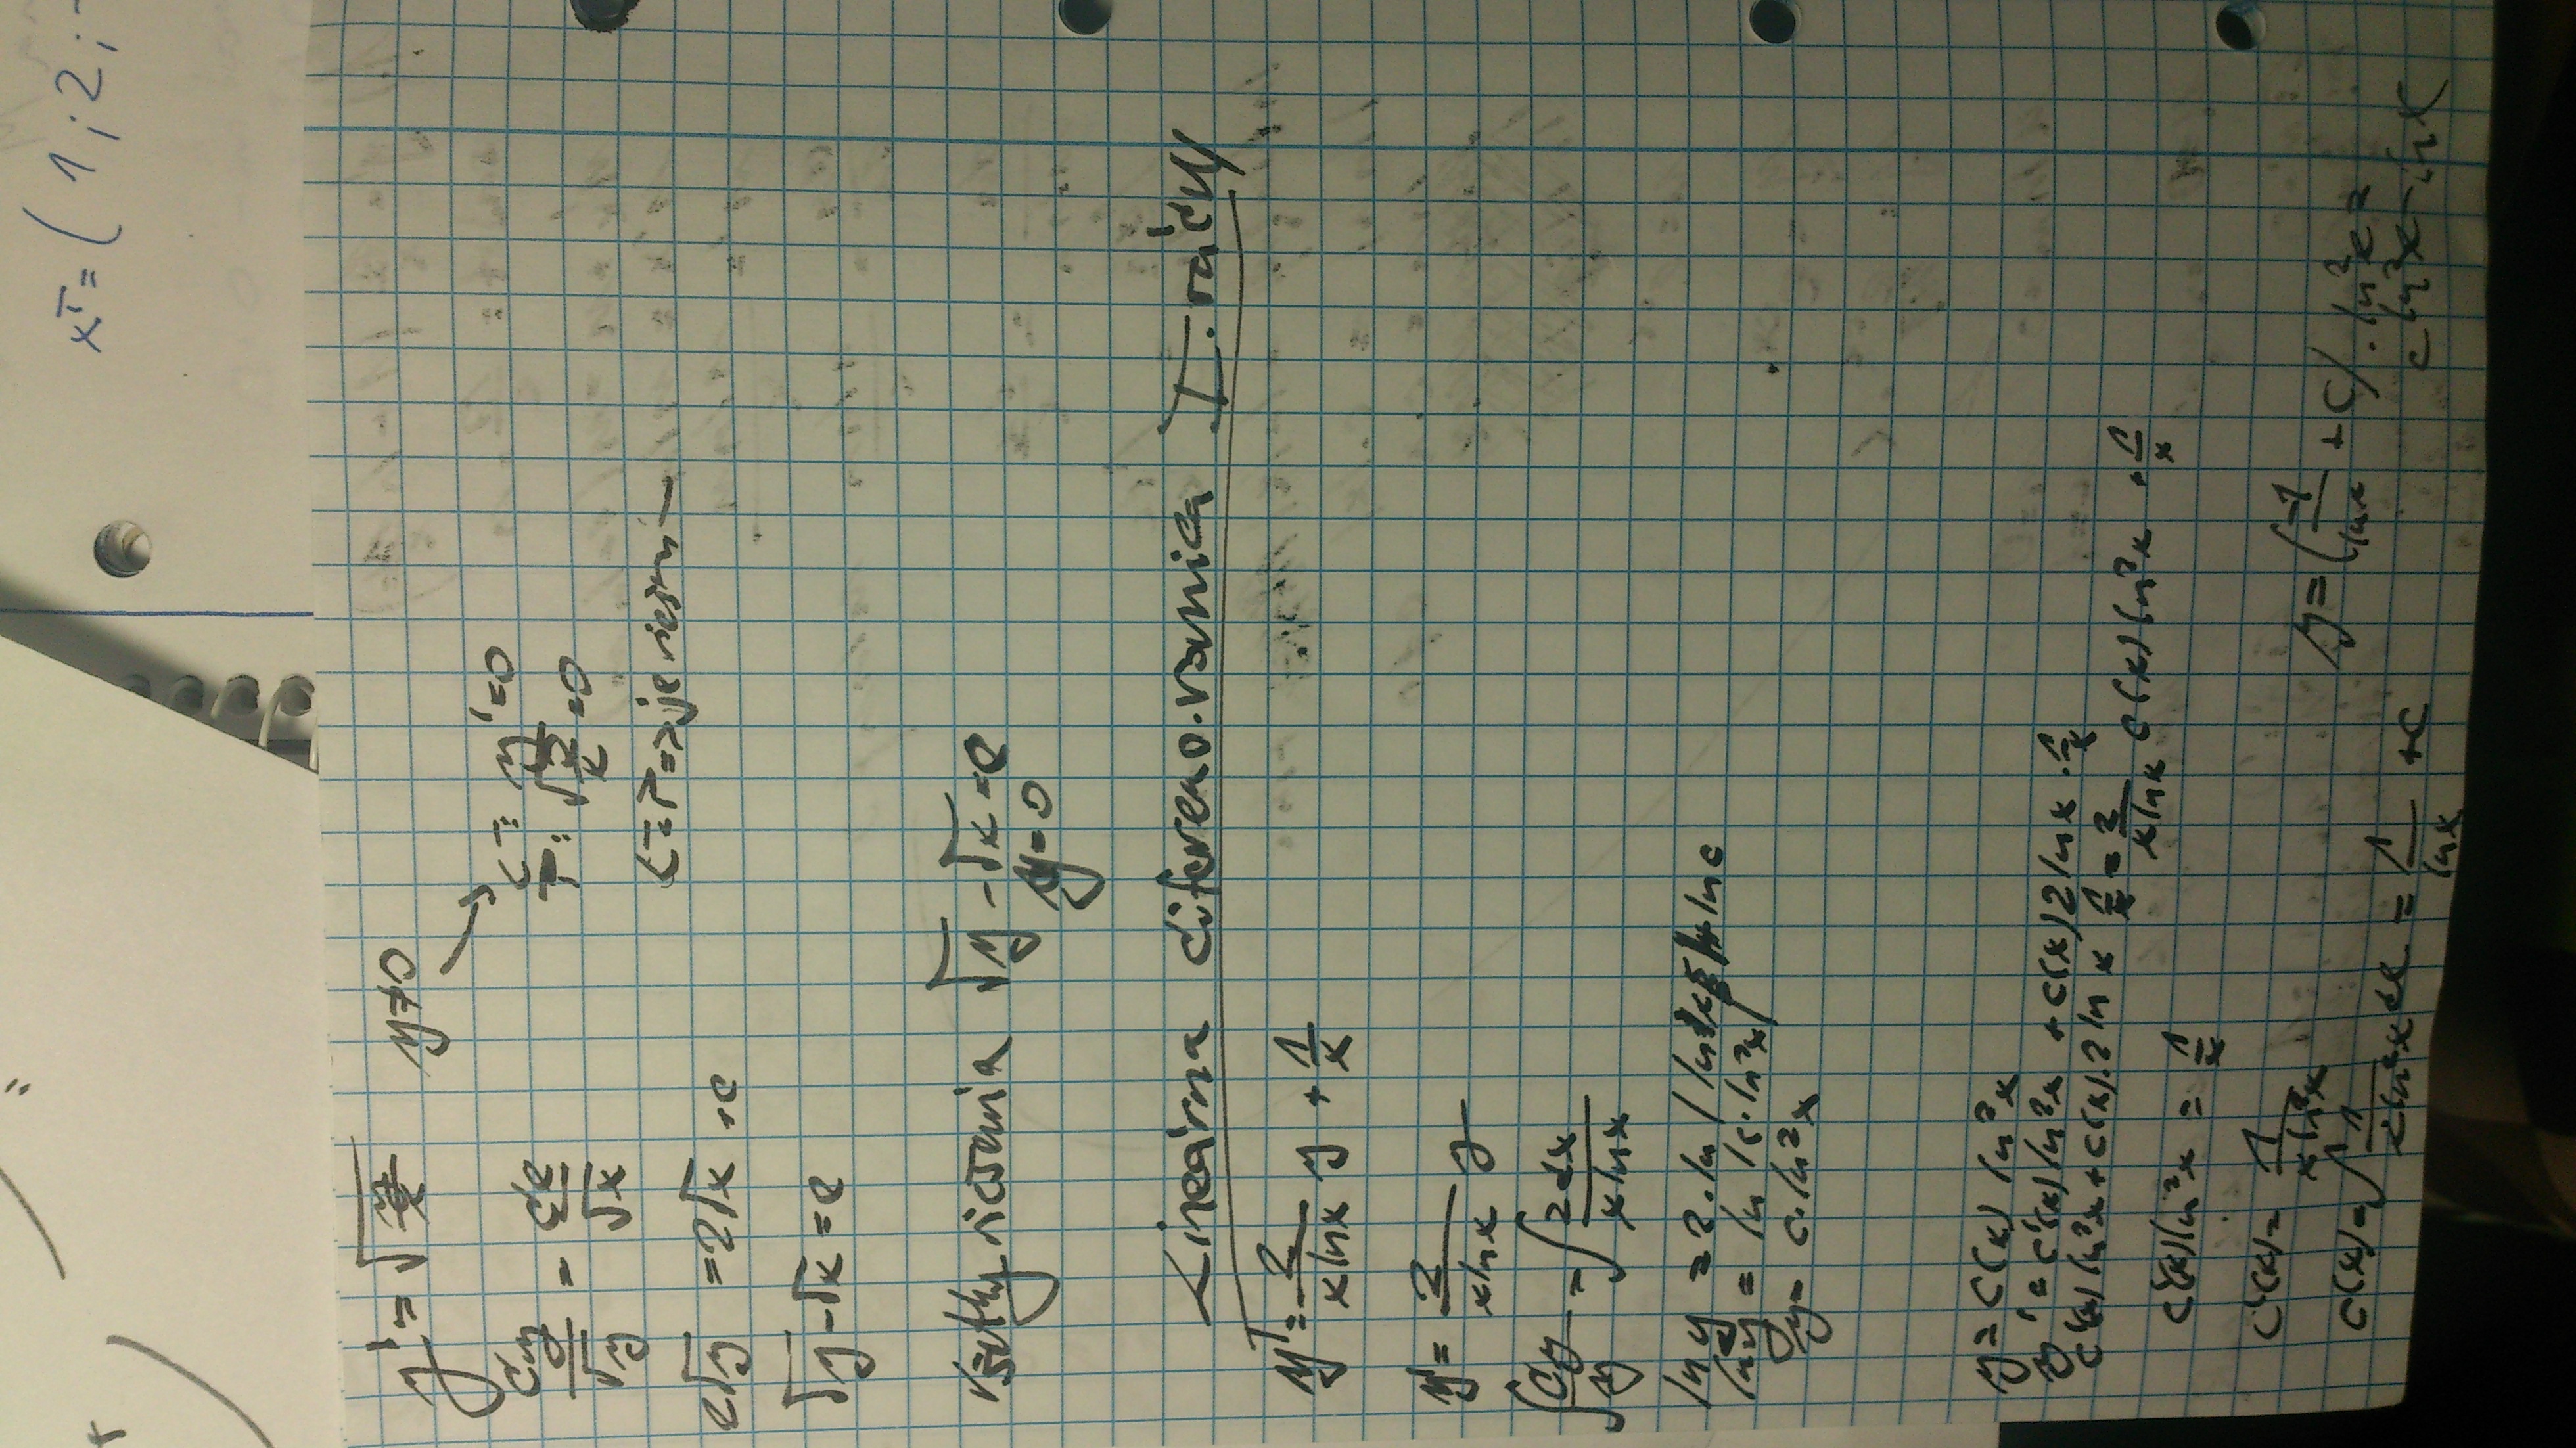 xᵀ = ( 1 ; 2 ;
y' = √(y/x) y ≠ 0
Ľ: y' = 0
dy/√y = dx/√x
P: √(y/x) = 0
Ľ = P => je riešen
2√y = 2√x + c
√y - √x = c
všetky riešenia √y - √x = c
y = 0
Lineárna diferenc. rovnica I. rádu
y' = 2/(x ln x) y + 1/x
y' = 2/(x ln x) y
∫ dy/y = ∫ 2dx/(x ln x)
ln y = 2 . ln | ln x | + ln c
ln y = ln |c . ln²x|
y = c . ln²x
y = c(x) ln²x
y' = c'(x) ln²x + c(x) 2 ln x . 1/x
c'(x) ln²x + c(x) . 2 ln x 1/x = 2/(x ln x) c(x) ln²x + 1/x
c'(x) ln²x = 1/x
c'(x) = 1/(x ln²x)
c(x) = ∫ 1/(x ln²x) dx = 1/ln x + c
y = (-1/ln x + c) . ln²x =
c ln²x - ln x